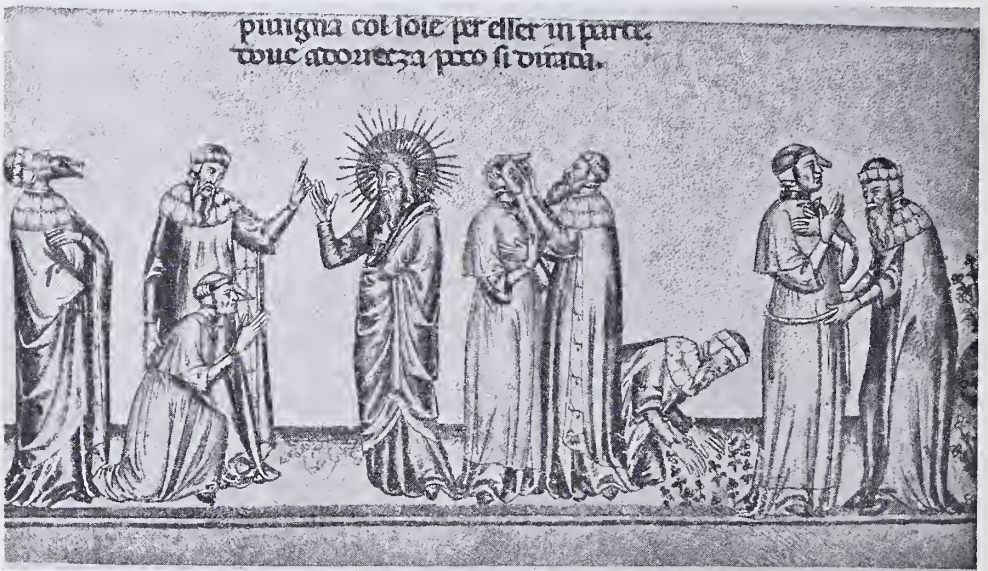 col sole per esser in parte.
doue adorezza poco si dirada.